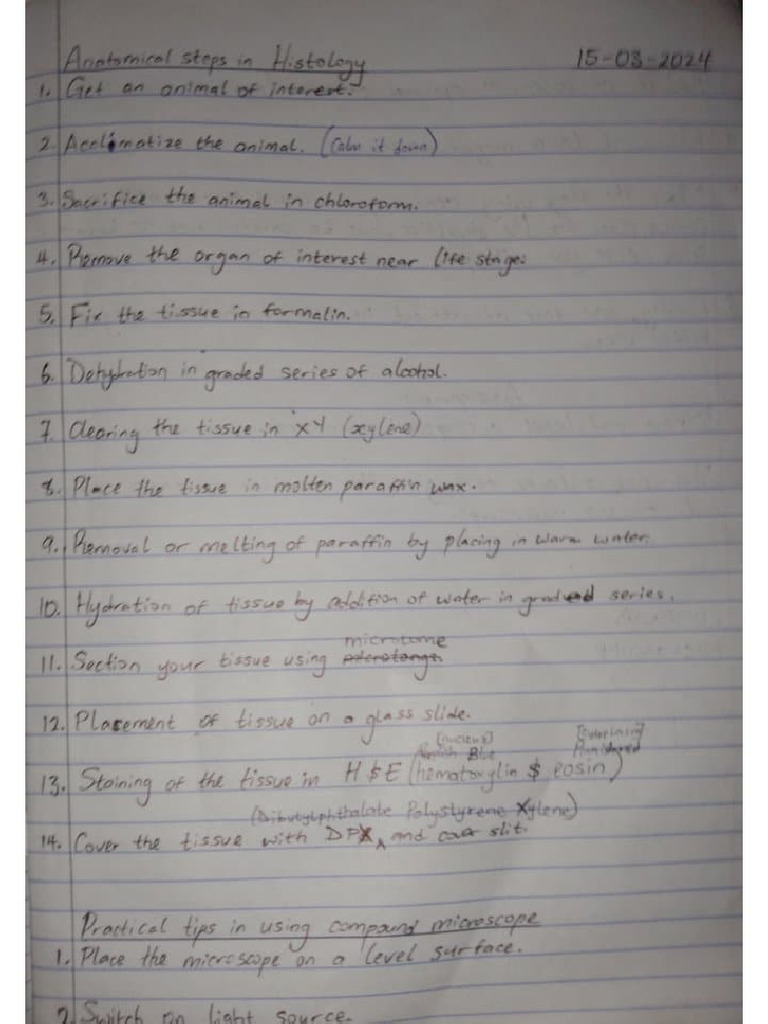 Anatomical steps in Histology 15-03-2024
1. Get an animal of interest.
2. Acclimatize the animal. (Calm it down)
3. Sacrifice the animal in chloroform.
4. Remove the organ of interest near life stage.
5. Fix the tissue in formalin.
6. Dehydration in graded series of alcohol.
7. Clearing the tissue in XY (xylene)
8. Place the tissue in molten paraffin wax.
9. Removal or melting of paraffin by placing in warm water.
10. Hydration of tissue by addition of water in graded series.
microtome
11. Section your tissue using
12. Placement of tissue on a glass slide.
[nucleus]
Blue
13. Staining of the tissue in H $ E (hematoxylin $ eosin)
(Dibutylphthalate Polystyrene Xylene)
14. Cover the tissue with DPX and cover slit.
Practical tips in using compound microscope
1. Place the microscope on a level surface.
2. Switch on light source.